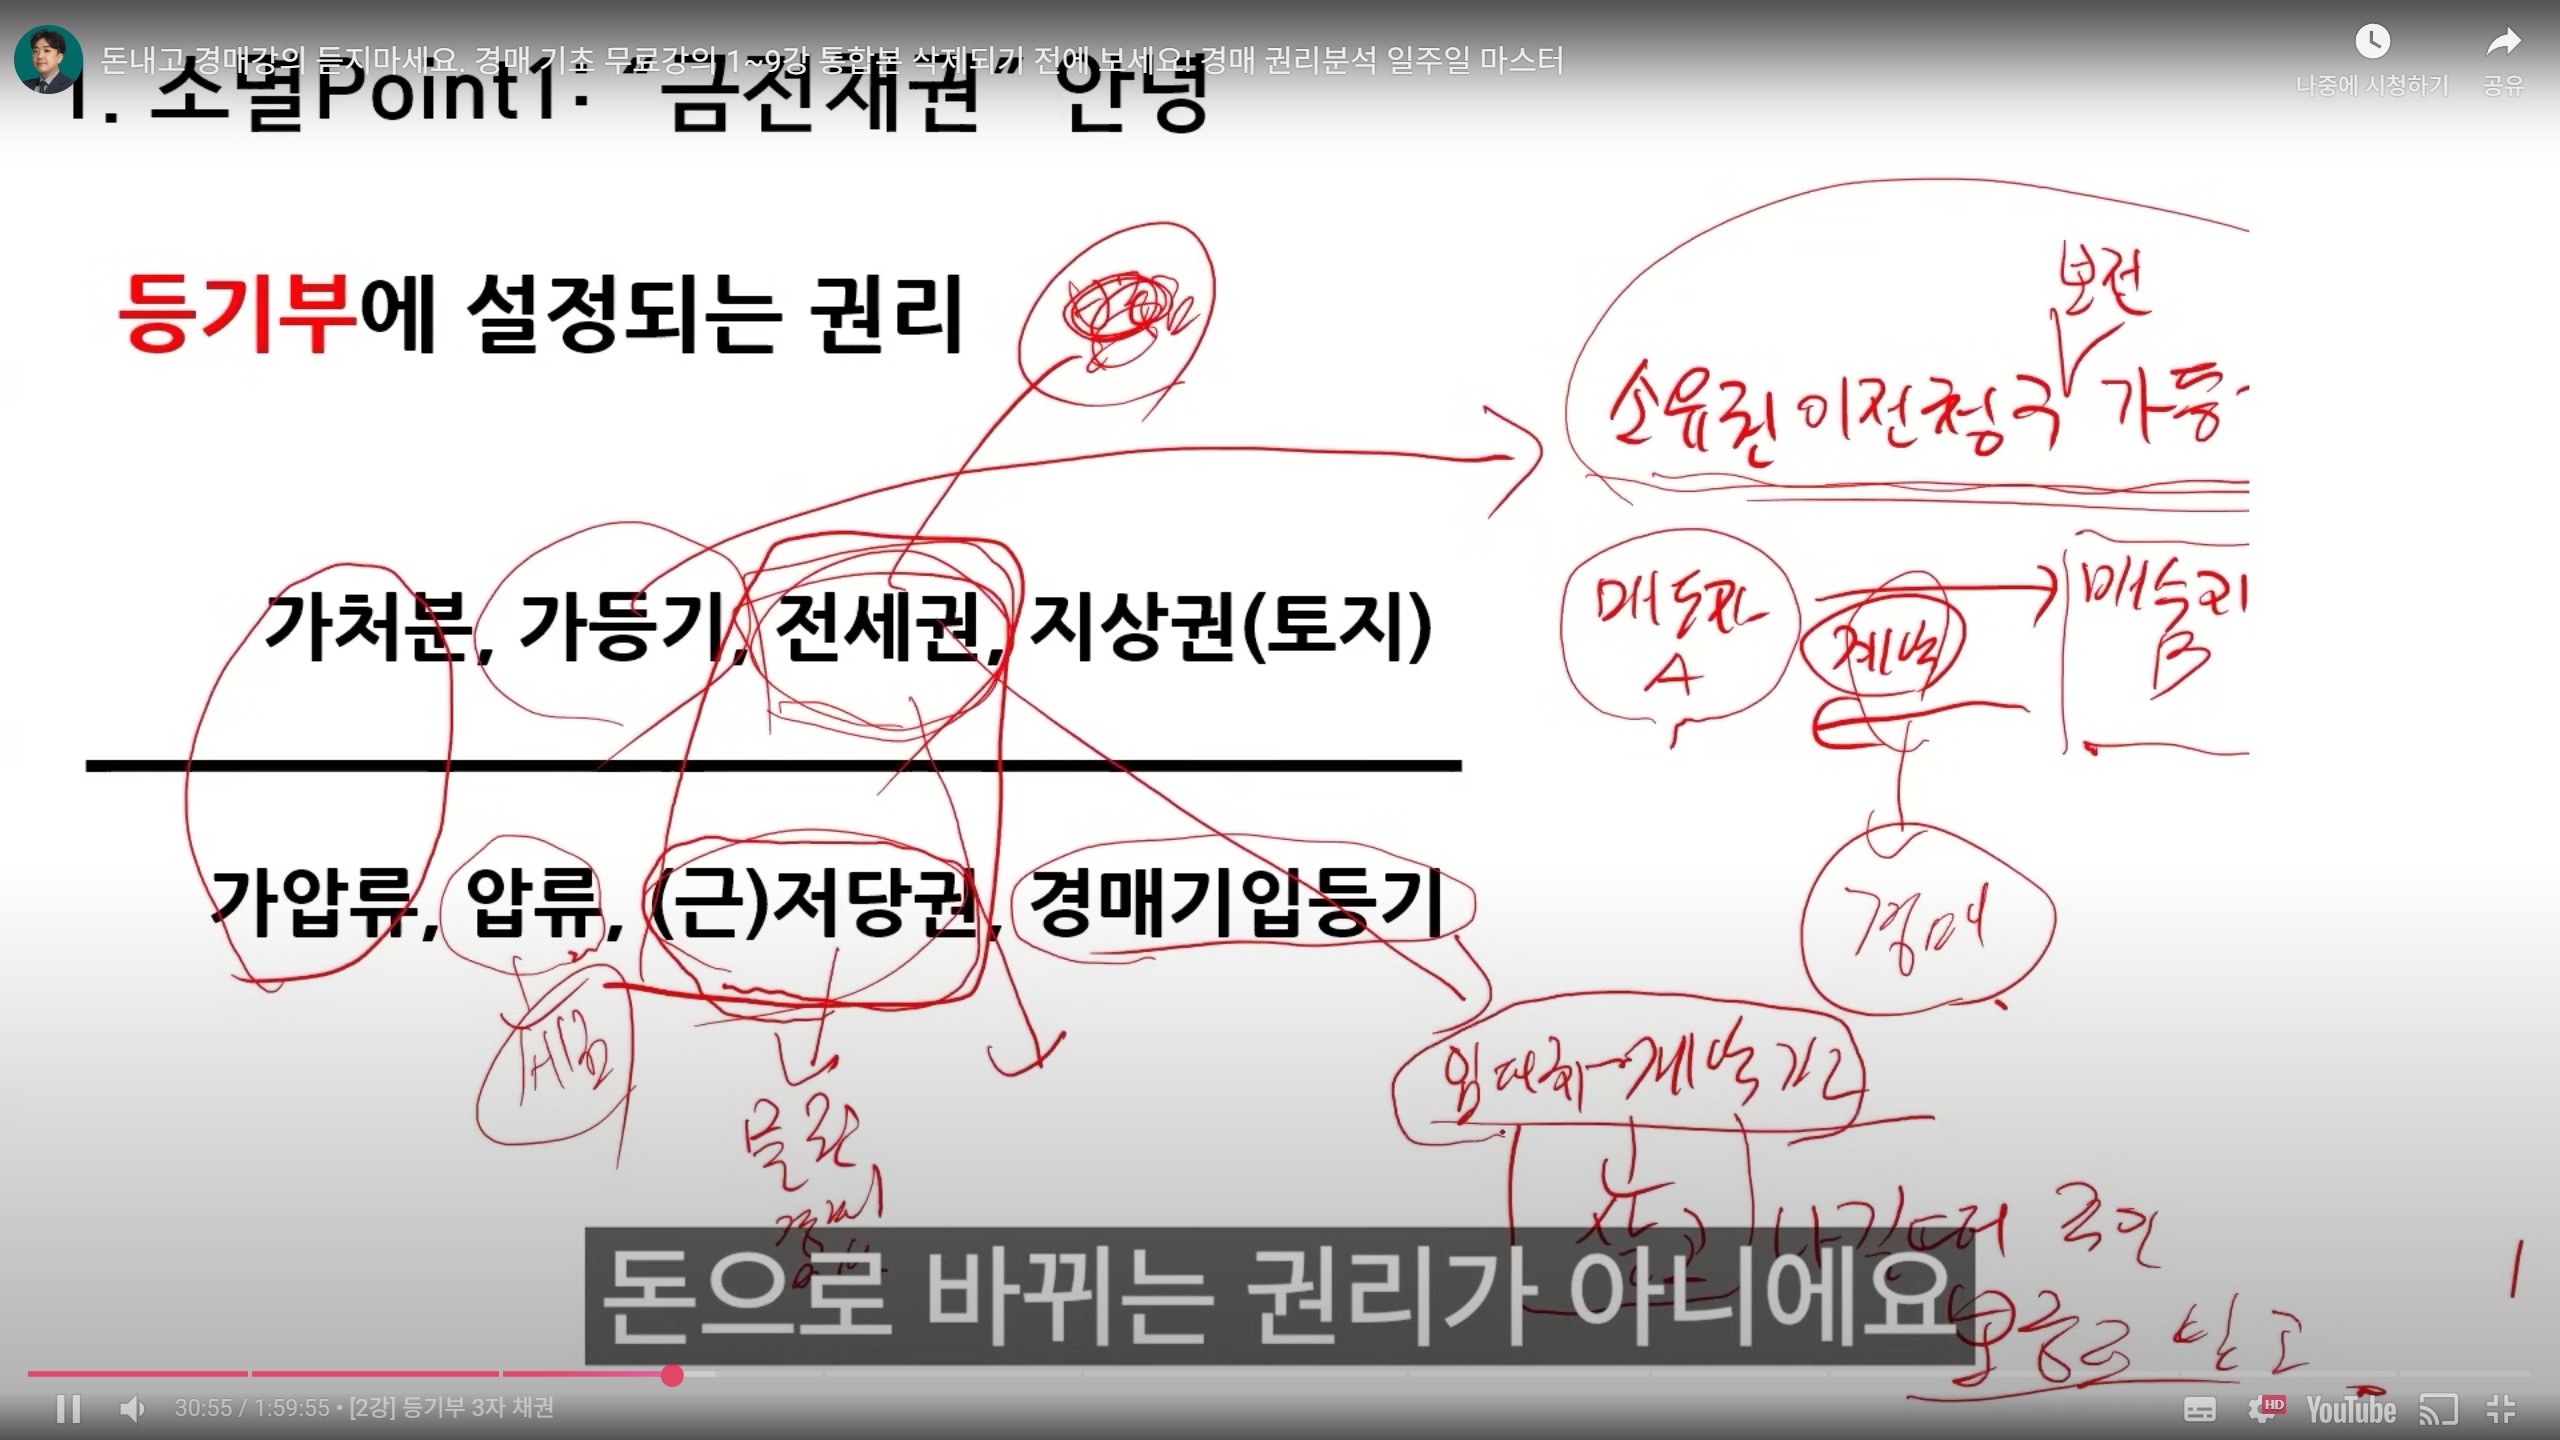 돈내고 경매강의 듣지마세요. 경매 기초 무료강의 1~9강 통합본 삭제되기 전에 보세요! 경매 권리분석 일주일 마스터
나중에 시청하기
공유
1. 소멸Point1: “금전채권” 안녕
등기부에 설정되는 권리
보전
소유권이전청구 가등
가처분, 가등기, 전세권, 지상권(토지)
매도인
A
계약
매수인
B
가압류, 압류, (근)저당권, 경매기입등기
경매
세금
임대차계약기간
물권
보증금 받고
돈으로 바뀌는 권리가 아니에요
30:55 / 1:59:55 • [2강] 등기부 3자 채권
HD
YouTube